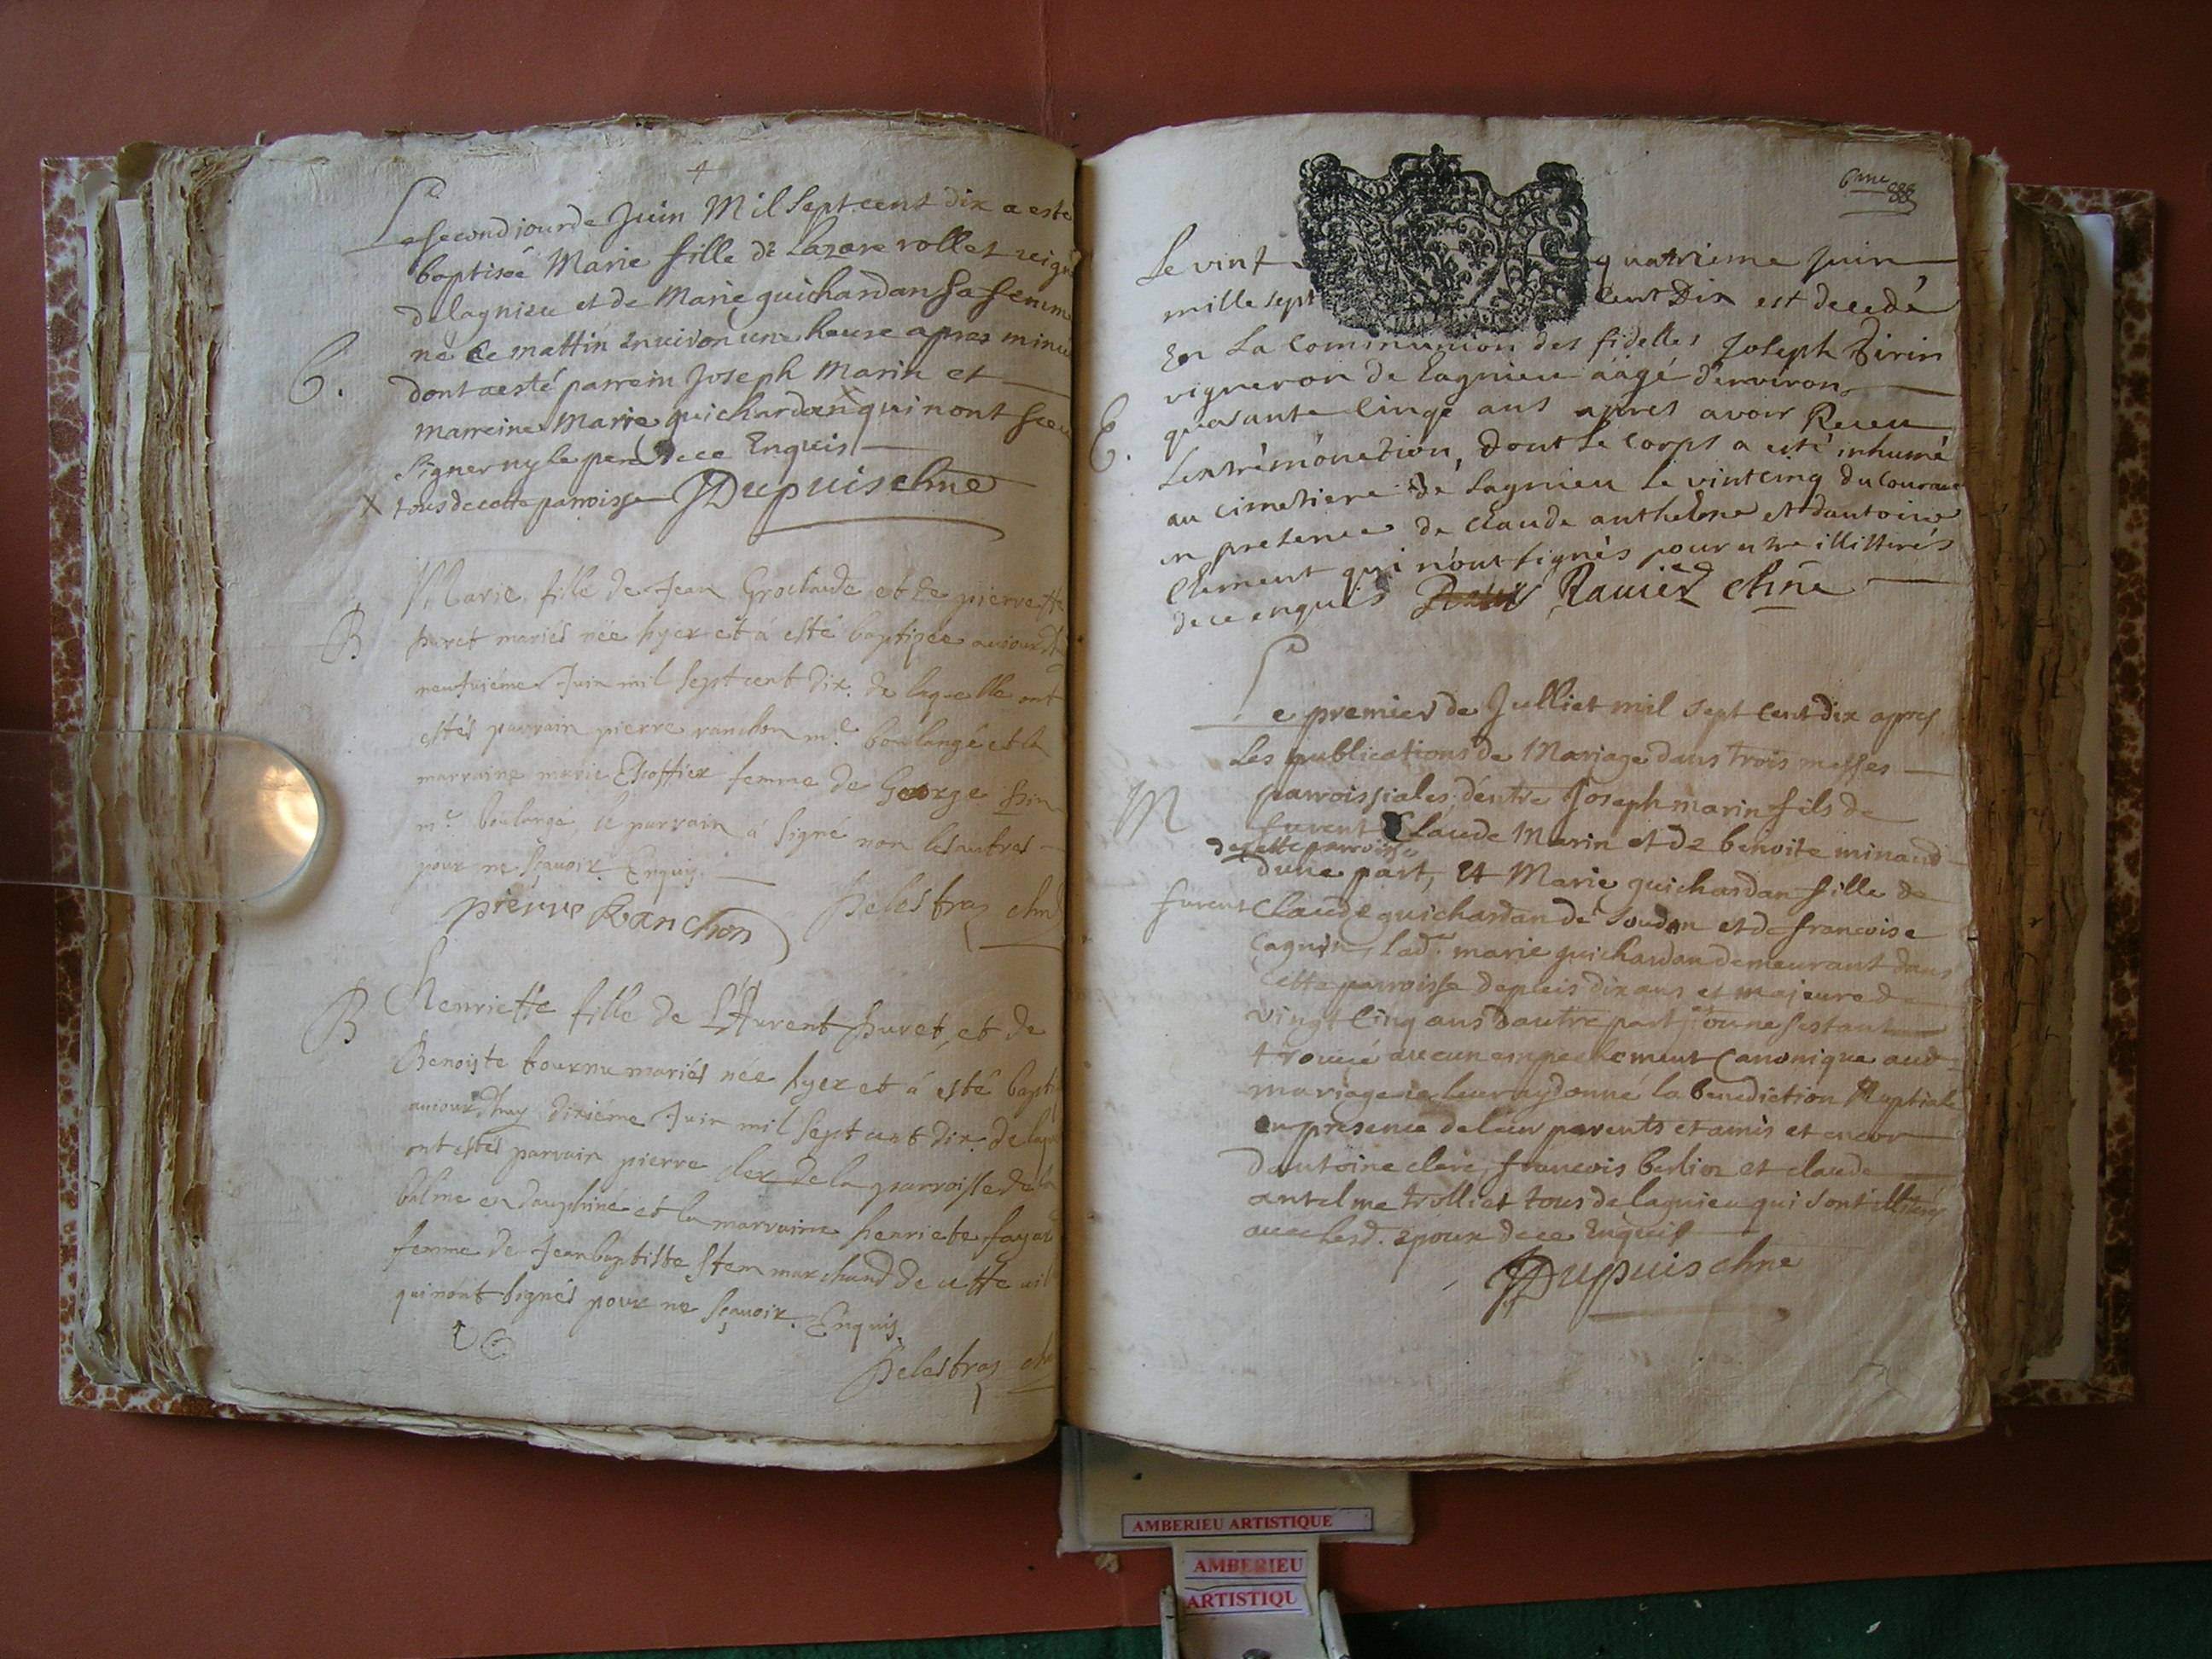 Le second jour de Juin Mil Sept cent dix a esté
baptiseé Marie fille de Lazare rollet
de lagnieu et de Marie guichardan sa femm
né ce mattin environ une heure apres minui
B.
dont a esté parrein Joseph Marin et
marreine Marie guichardan qui n ont sceu
signer ny le pere de ce Enquis
X tous de cette parroisse JDupuis chne
B
Marie fille de Jean Groclaude et de pierrette
huret mariés née hyer et á esté baptizée aujourdh
neufuiéme Juin mil sept cent dix. de laquelle ont
estés parrain pierre ranchon me boulangé et la
marraine marie Escoffier femme de George
me boulangé, le parrain á signé non les autres
pour ne sçavoir. Enquis.
pierre Ranchon
pelestraz chne
B
Henriette fille de LAurent huret, et de
Benoiste tournu mariés née hyer et á esté bapti
aujourdhuy dixiéme Juin mil sept cent dix. de laqu
ont estés parrain pierre clex de la parroisse de la
balme en dauphiné et la marraine henriete fayat
femme de Jean baptiste stem marchand de cette vil
qui n'ont signés pour ne sçavoir. Enquis.
pelestraz chn
6me
Le vint quatrieme juin
mille sept Cent Dix est decedé
En La Communion des fidelles Joseph Sirin
vigneron de Lagnieu aâgé d'environ
E.
quarante Cinqe ans apres avoir Receu
Lextrémonction, Dont Le Corps a esté inhumé
au Cimetiere de Lagnieu Le vintcinq du Courant
en presence de Claude anthelme et dantoine
Clement qui n'ont signés pour estre illitterés
de ce enquis Ravier chne
Le premier de Julliet mil sept Cent dix apres
Les publications de Mariage dans trois messes
M
parroissiales, d'entre Joseph marin fils de
furent Claude Marin et de benoite minaud
de cette parroisse
dune part, Et Marie guichardan fille de
furent Claude guichardan de Soudon et de francoise
Cagnin, lad. marie guichardan demeurant dans
Cette parroisse depuis dix ans et majeure de
vingt Cinq ans dautre part, ou ne sestant
trouvé aucun empeschement Canonique aud
mariage je leur ay donné la benediction Nuptiale
en presence de leur parents et amis et encor
dantoine clerc, francois berlioz et claude
antelme trolliet tous de lagnieu qui sont illiterés
avec lesd. epoux de ce Enquis
JDupuis chne
AMBERIEU ARTISTIQUE
AMBERIEU
ARTISTIQU